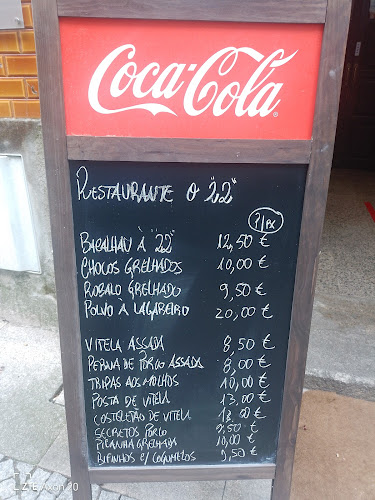 Coca-Cola
RESTAURANTE O "22"
BACALHAU À "22" 12,50 €
CHOCOS GRELHADOS 10,00 €
ROBALO GRELHADO 9,50 €
POLVO À LAGAREIRO 20,00 €
VITELA ASSADA 8,50 €
PERNA DE PORCO ASSADA 8,00 €
TRIPAS AOS MOLHOS 10,00 €
POSTA DE VITELA 13,00 €
COSTELETÃO DE VITELA 13,50 €
SECRETOS PORCO 9,50 €
PICANHA GRELHADA 10,00 €
BIFINHOS C/ COGUMELOS 9,50 €